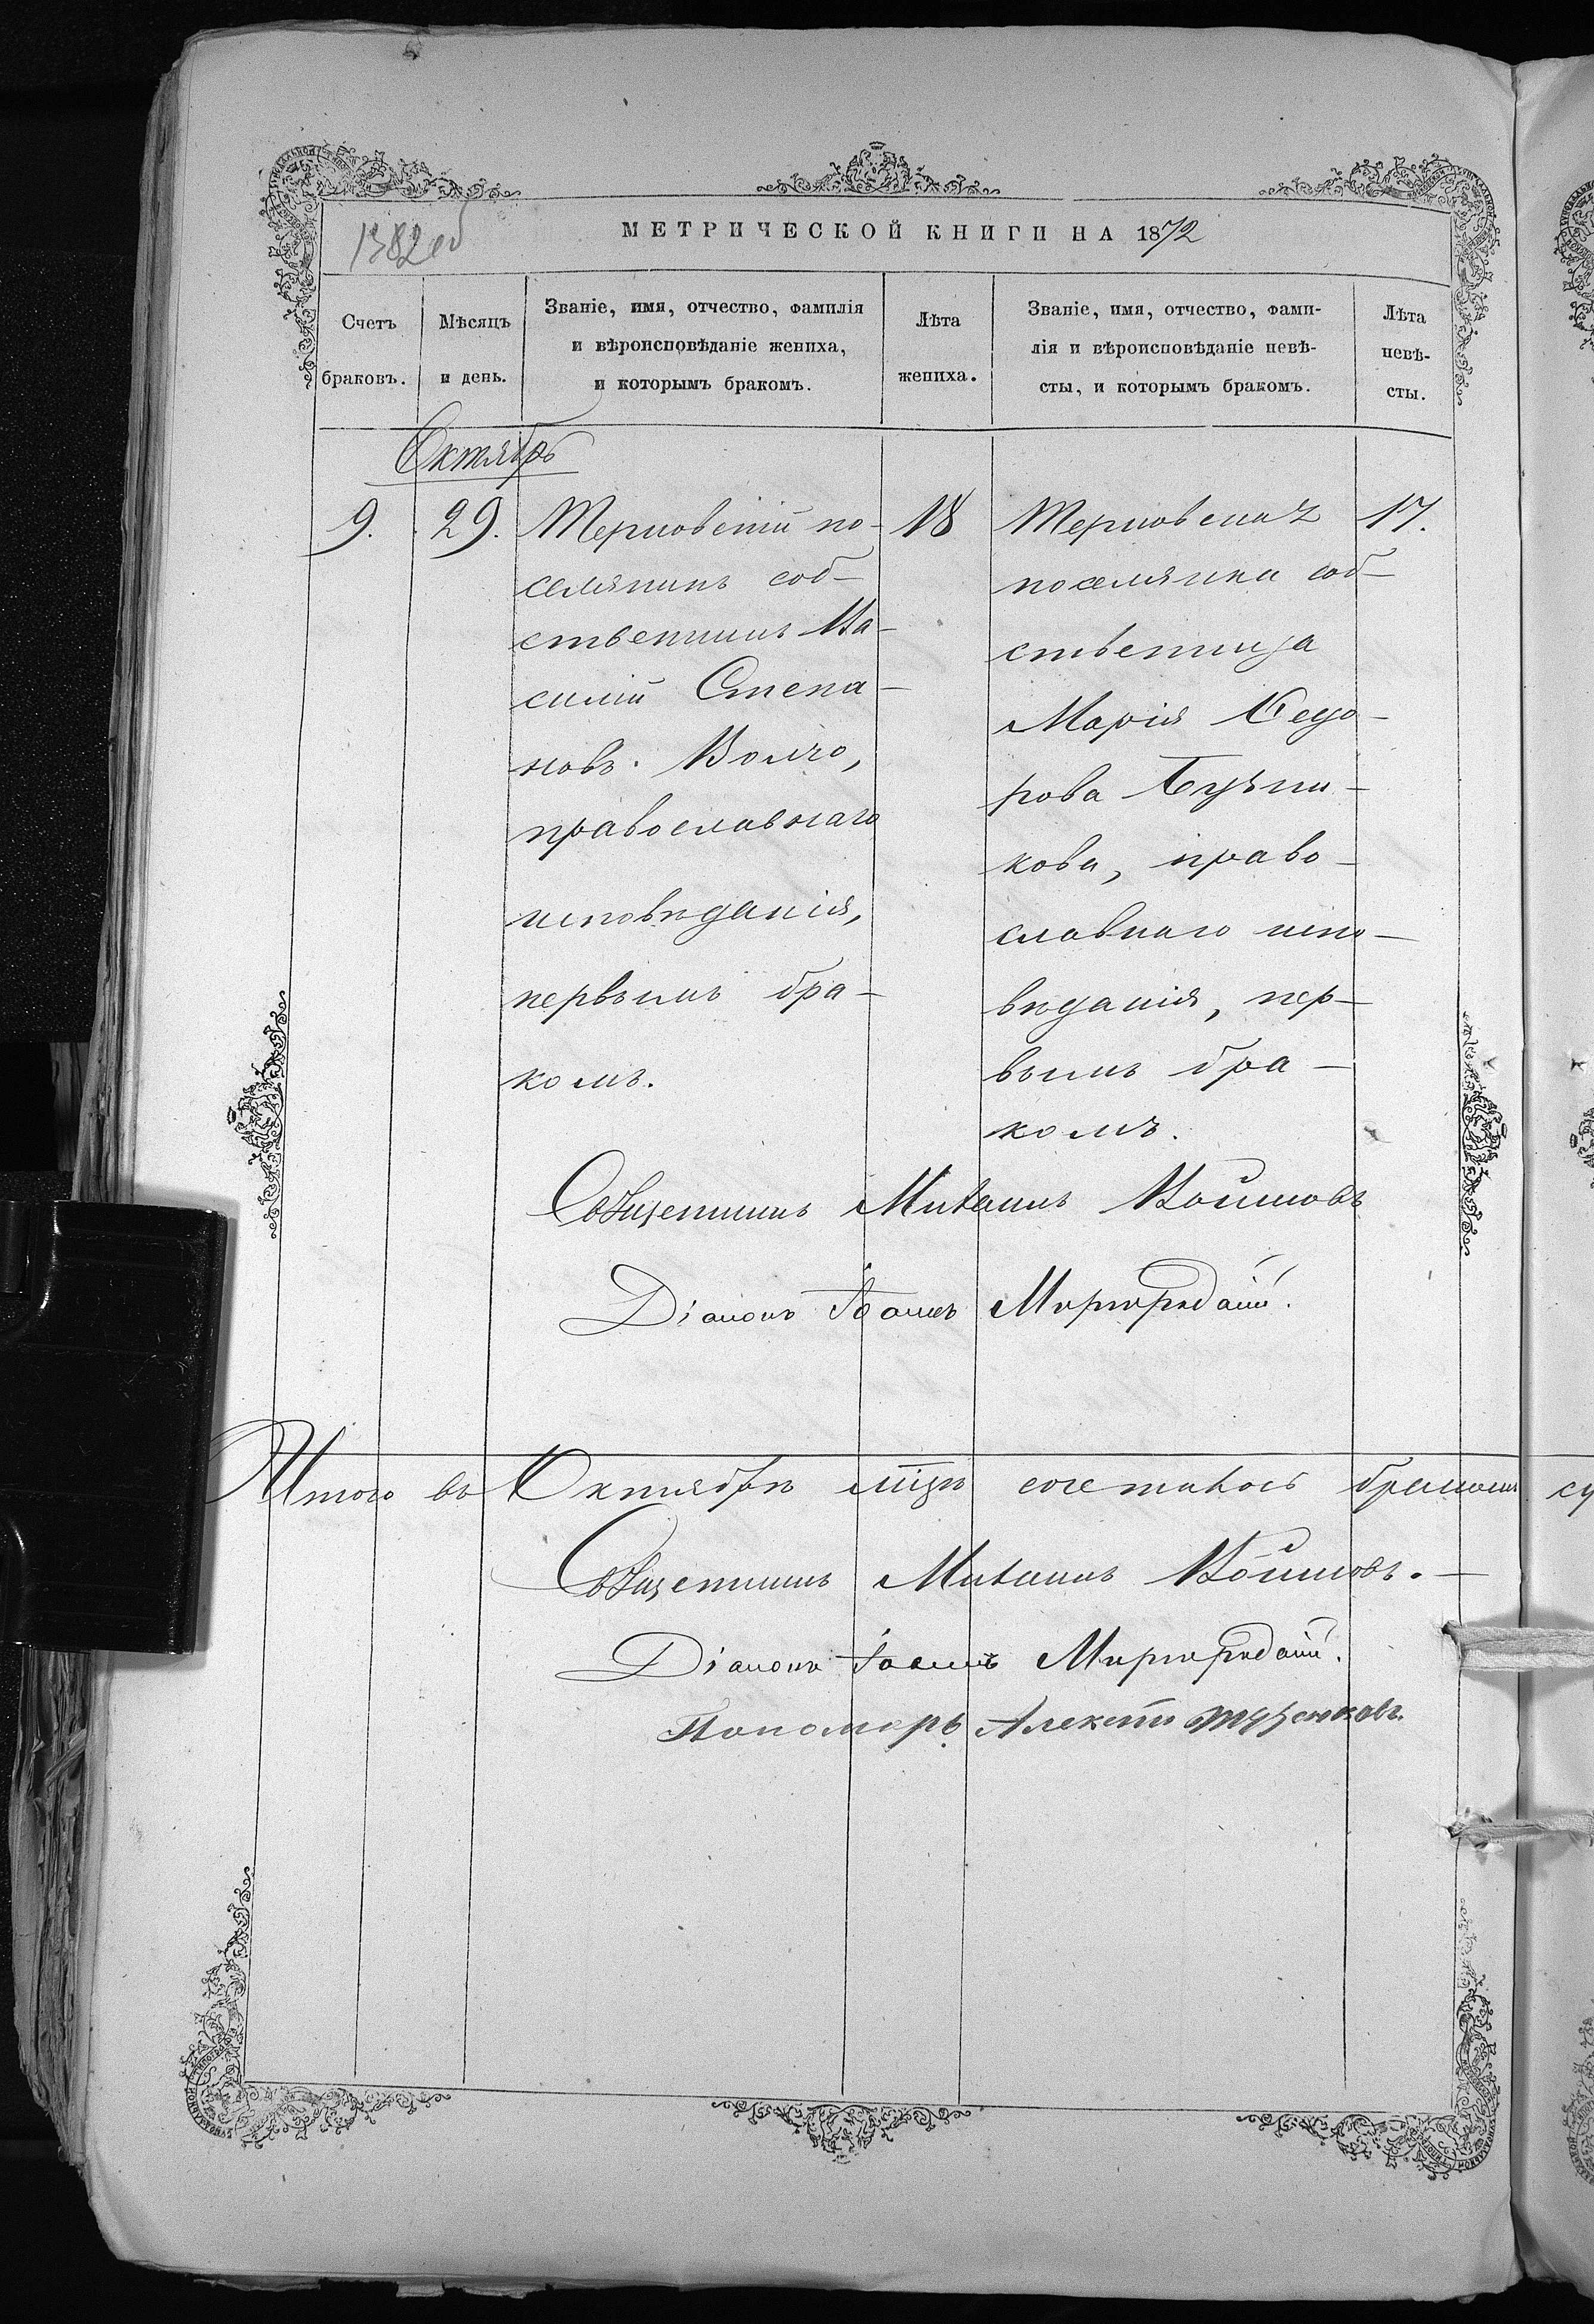 1382об
МЕТРИЧЕСКОЙ КНИГИ НА 1872
Счетъ браковъ.
Мѣсяцъ и день.
Званіе, имя, отчество, фамилія
и вѣроисповѣданіе жениха,
и которымъ бракомъ.
Лѣта жениха.
Званіе, имя, отчество, фами-
лія и вѣроисповѣданіе невѣ-
сты, и которымъ бракомъ.
Лѣта невѣ-
сты.
Октябрь
9.
29.
Терновскій по-
селянинъ соб-
ственникъ Ва-
силій Степа-
новъ Волчо,
православнаго
исповѣданія,
первымъ бра-
комъ.
18
Терновская
поселянка соб-
ственница
Марія Ѳедо-
рова
кова, право-
славнаго испо-
вѣданія, пер-
вымъ бра-
комъ.
17.
Священникъ Михаилъ
Діаконъ Іоаннъ
Итого въ Октябрѣ мцѣ сочеталось бракомъ
Священникъ Михаилъ
Діаконъ Іоаннъ
Пономарь Алексѣй